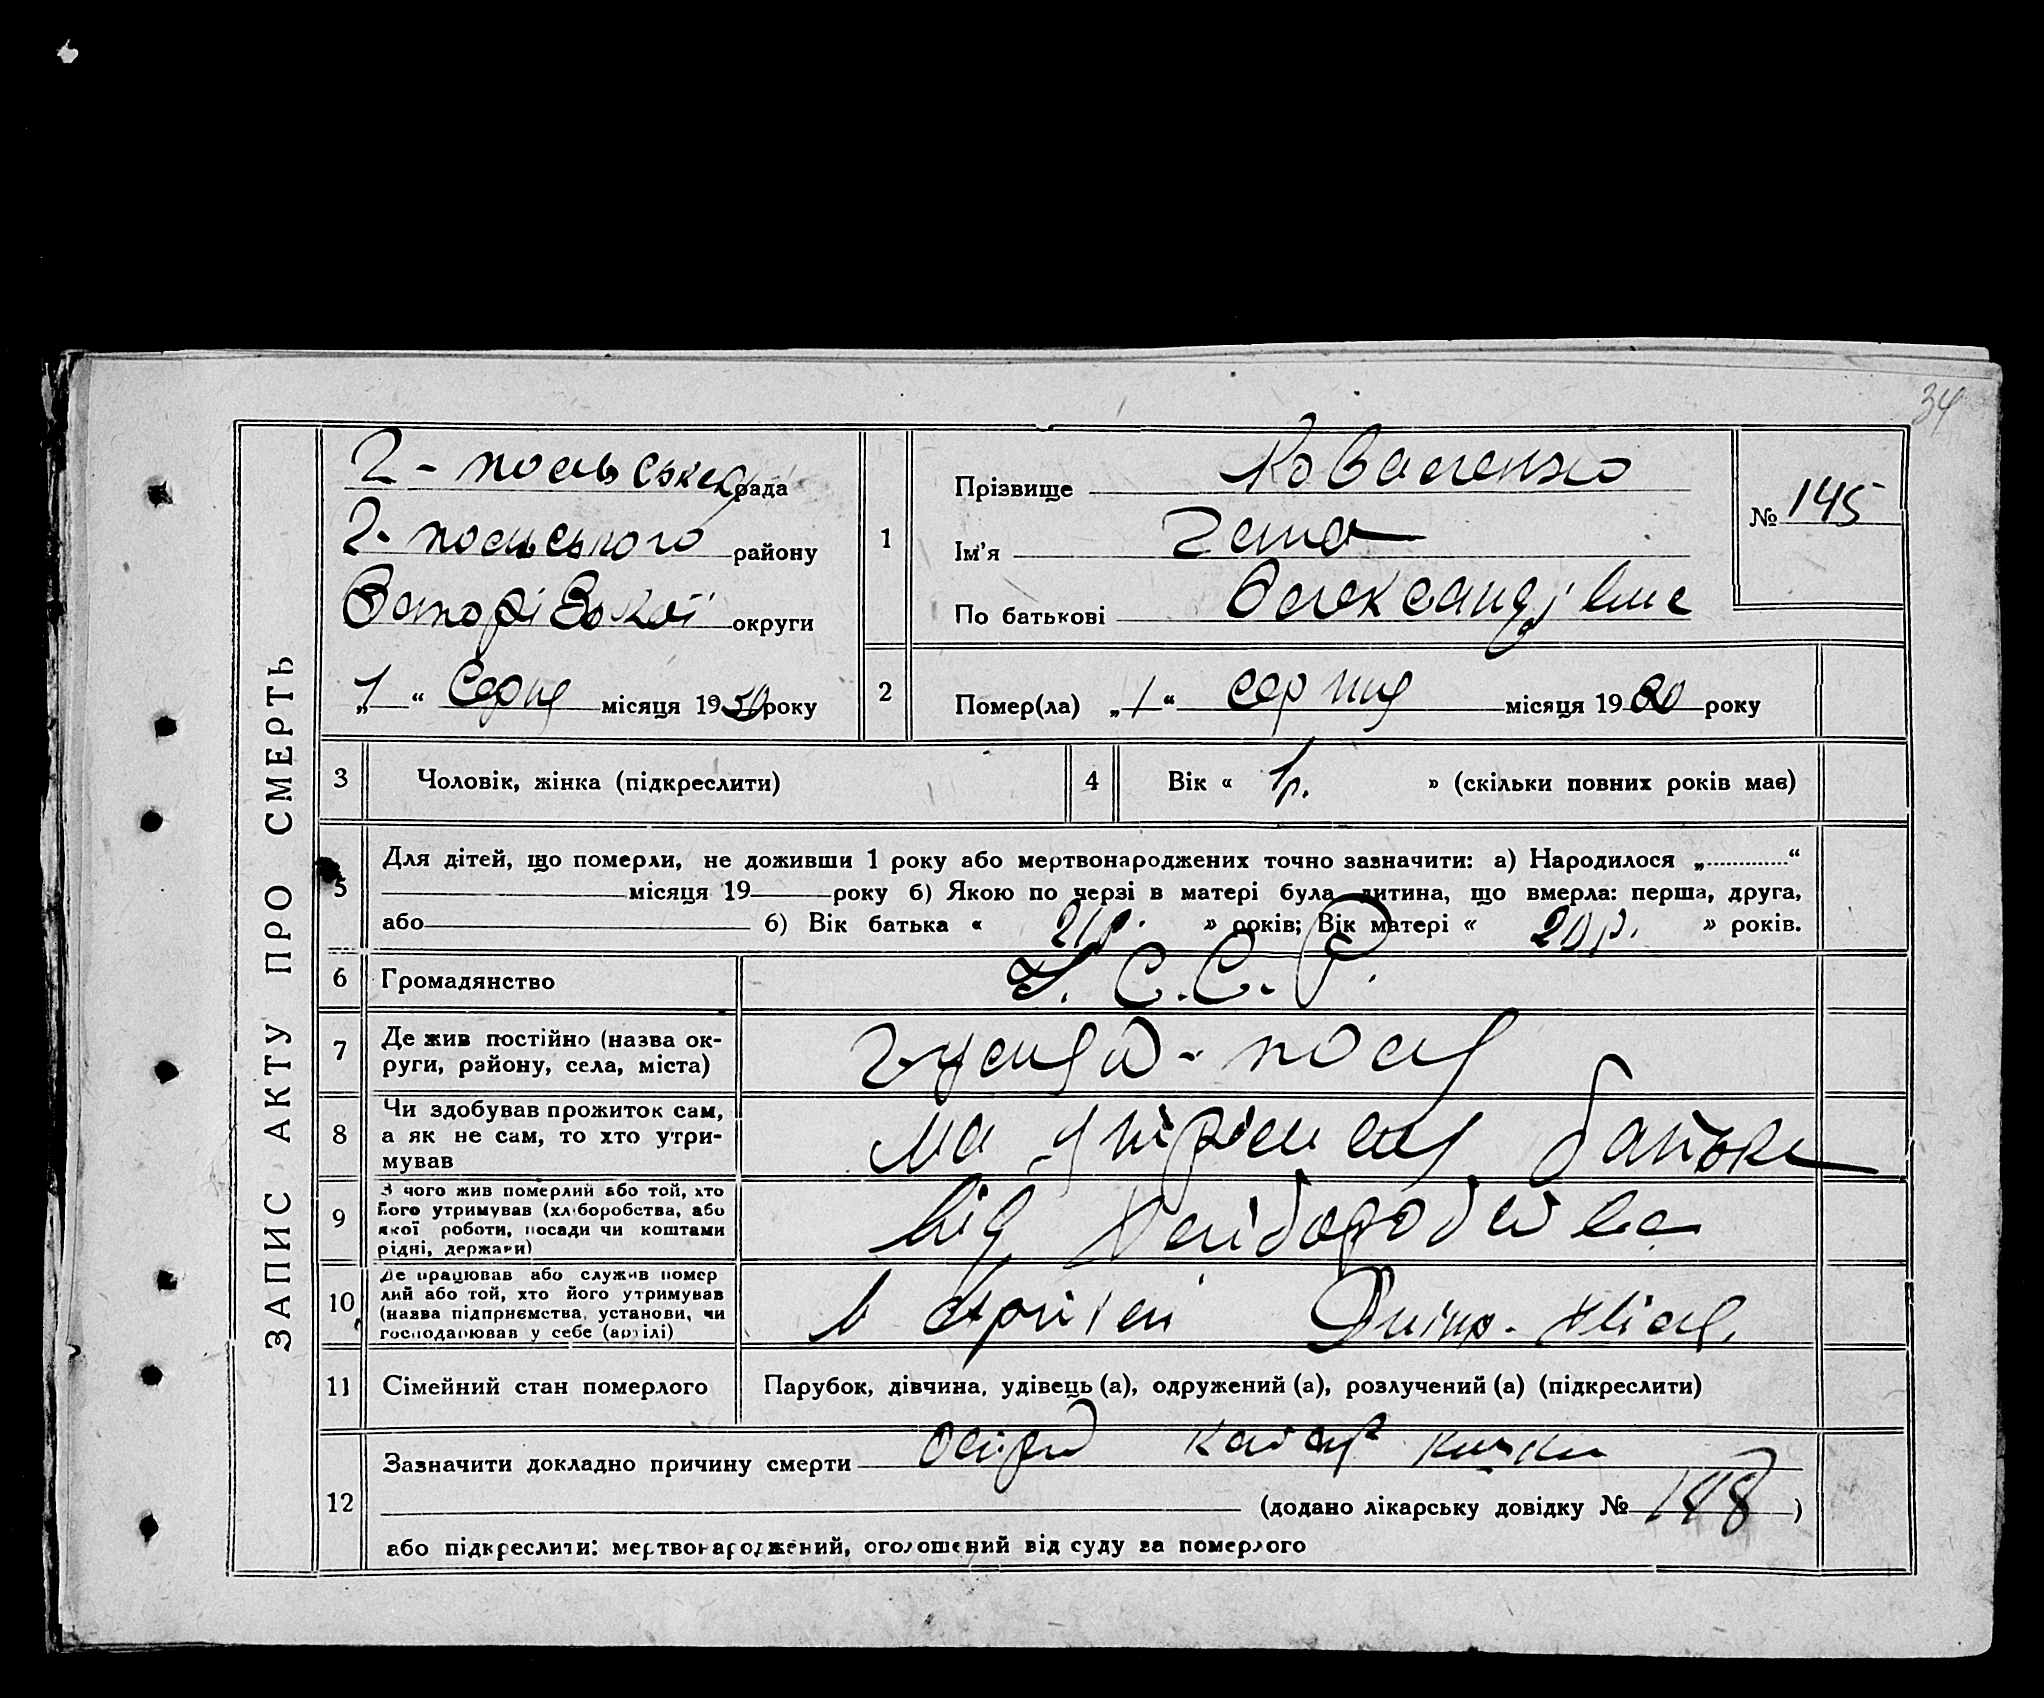 34
ЗАПИС АКТУ ПРО СМЕРТЬ
2-польська рада
2-польського району
Запорізької округи
„1“ Серпня місяця 1930 року
1
Прізвище Коваленко
Ім’я
По батькові
№ 145
2
Помер(ла) „1“ серпня місяця 1930 року
3
Чоловік, жінка (підкреслити)
4
Вік « 1 р. » (скільки повних років має)
5
Для дітей, що померли, не доживши 1 року або мертвонароджених точно зазначити: а) Народилося „ “
місяця 19 року б) Якою по черзі в матері була дитина, що вмерла: перша, друга,
або б) Вік батька « 21р. » років; Вік матері « 20 р. » років.
6
Громадянство
У. С. С. Р.
7
Де жив постійно (назва ок-
руги, району, села, міста)
Гуляй-поле
8
Чи здобував прожиток сам,
а як не сам, то хто утри-
мував
на утріманні батька
9
З чого жив померлий або той, хто
його утримував (хліборобства, або
якої роботи, посади чи коштами
рідні, держави)
від хліборобства
10
Де працював або служив помер
лий або той, хто його утримував
(назва підприємства, установи, чи
господарював у себе (артілі)
в артілі
11
Сімейний стан померлого
Парубок, дівчина, удівець (а), одружений (а), розлучений (а) (підкреслити)
12
Зазначити докладно причину смерти острий катар кишки
(додано лікарську довідку № 148)
або підкреслити: мертвонароджений, оголошений від суду за померлого